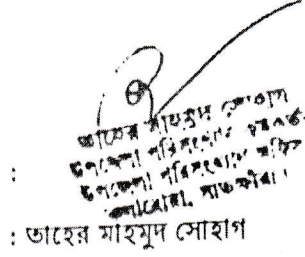 তাহের মাহমুদ সোহাগ
উপজেলা পরিসংখ্যান
উপজেলা পরিসংখ্যান অফিস
সাতক্ষীরা।
:
: তাহের মাহমুদ সোহাগ